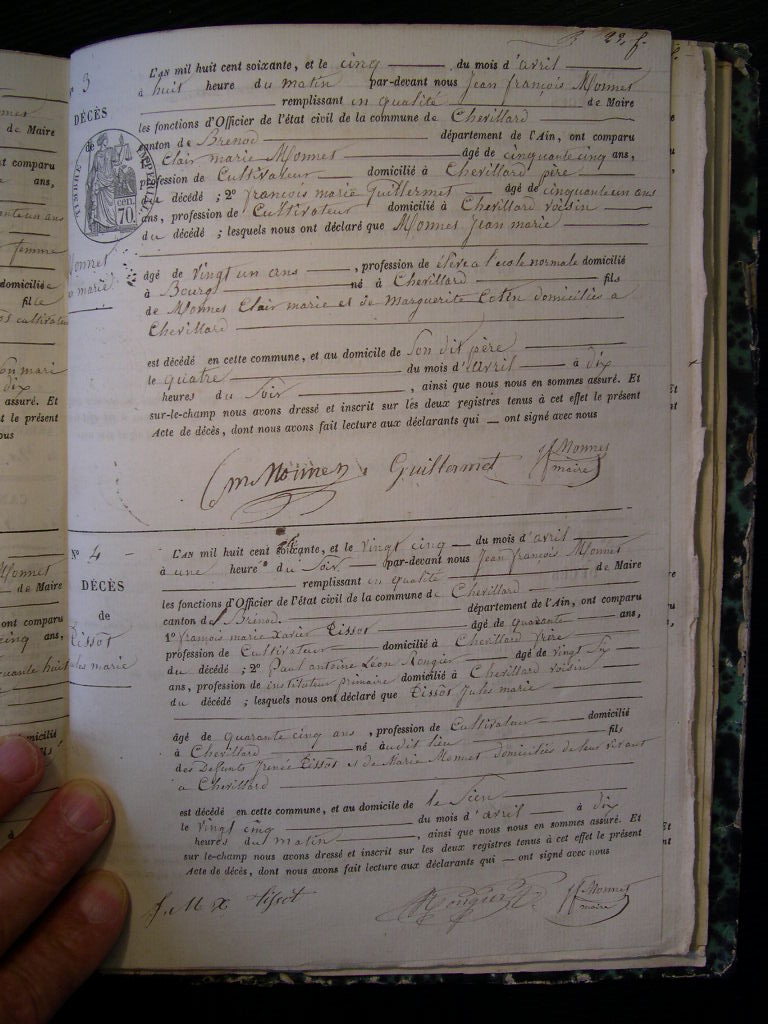 22. f.
N° 3
L'AN mil huit cent soixante, et le cinq du mois d'avril
à huit heure du matin par-devant nous Jean françois Monnet
remplissant en qualité de Maire
DÉCÈS
les fonctions d'Officier de l'état civil de la commune de Chevillard
de
canton de Brenod département de l'Ain, ont comparu
Clair marie Monnet âgé de cinquante cinq ans,
profession de Cultivateur domicilié à Chevillard père
du décédé ; 2° françois marie Guillermet âgé de cinquante un ans
ans, profession de Cultivateur domicilié à Chevillard voisin
du décédé ; lesquels nous ont déclaré que Monnet Jean marie
TIMBRE IMPÉRIAL
cen. 70
Monnet
marie
âgé de vingt un ans, profession de élève a l'ecole normale domicilié
à Bourg né à Chevillard fils
de Monnet Clair marie et de Marguerite Cotin domiciliés a
Chevillard
est décédé en cette commune, et au domicile de Son dit père
le quatre du mois d'avril à dix
heures du Soir, ainsi que nous nous en sommes assuré. Et
sur-le-champ nous avons dressé et inscrit sur les deux registres tenus à cet effet le présent
Acte de décès, dont nous avons fait lecture aux déclarants qui — ont signé avec nous
Guillermet Monnet
maire
N° 4
L'AN mil huit cent soixante, et le vingt cinq du mois d'avril
à une heure du Soir par-devant nous Jean françois Monnet
remplissant en qualité de Maire
DÉCÈS
les fonctions d'Officier de l'état civil de la commune de Chevillard
de
canton de Brenod département de l'Ain, ont comparu
Tissot
Jules marie
1° françois marie Xavier Tissot âgé de quarante ans,
profession de Cultivateur domicilié à Chevillard frère
du décédé ; 2° Paul antoine Léon Rougier âgé de vingt six
ans, profession de instituteur primaire domicilié à Chevillard voisin
du décédé ; lesquels nous ont déclaré que Tissot Jules marie
âgé de quarante cinq ans, profession de Cultivateur domicilié
à Chevillard né audit lieu fils
des Defunts Tissot et de Marie Monnet domiciliés de leur vivant
a Chevillard
est décédé en cette commune, et au domicile de le Sien
le vingt cinq du mois d'avril à dix
heures du matin, ainsi que nous nous en sommes assuré. Et
sur-le-champ nous avons dressé et inscrit sur les deux registres tenus à cet effet le présent
Acte de décès, dont nous avons fait lecture aux déclarants qui — ont signé avec nous
f. M X tissot Rougier Monnet
maire